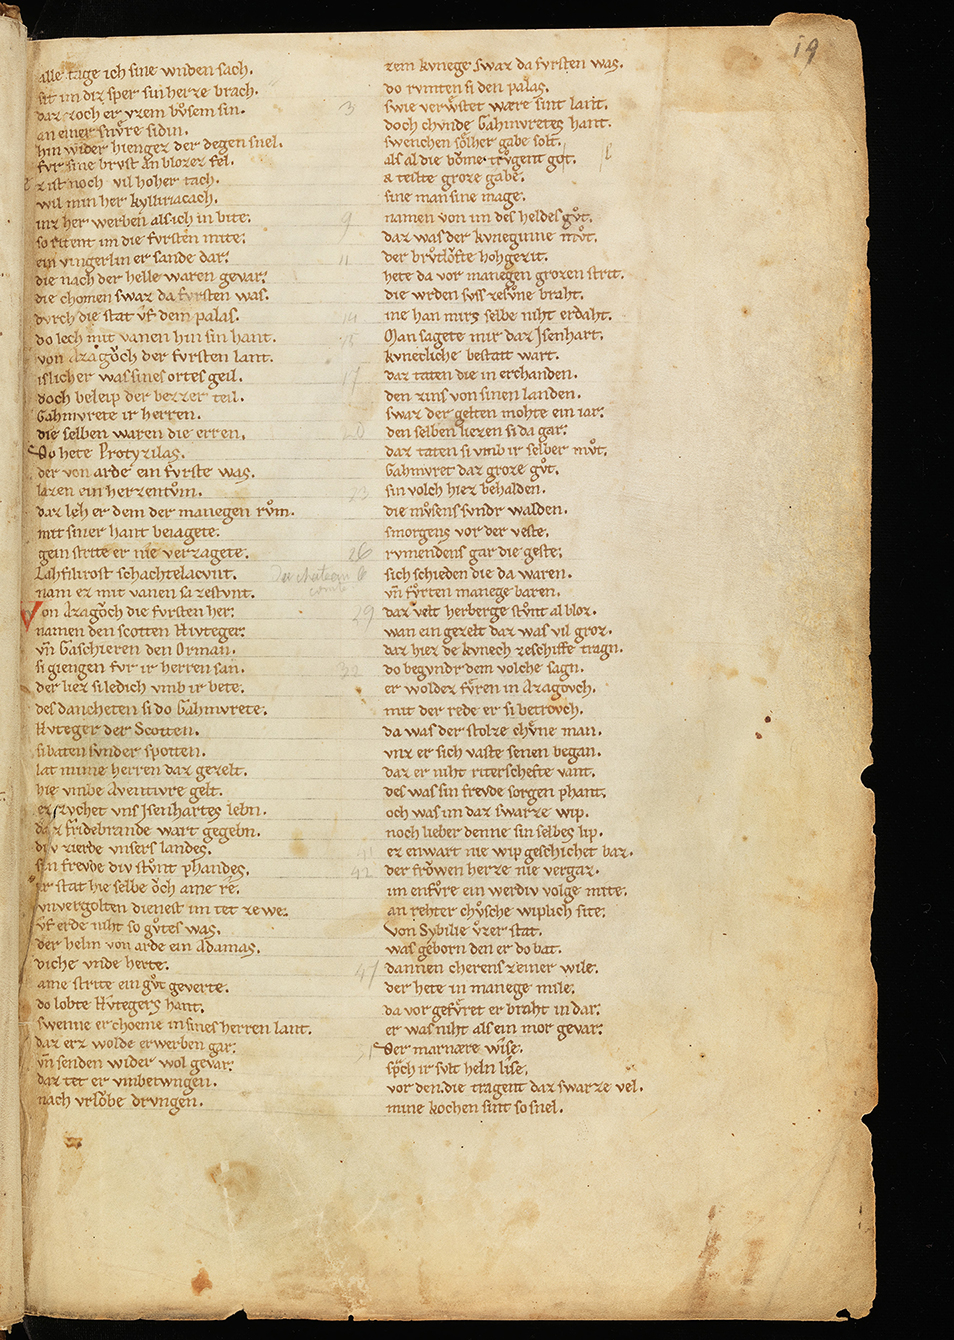 19
alle tage ich sine wnden sach.
sit im diz sper sin herze brach.
daz zoch er vzem bůsem sin.
an einer snůre sidin.
hin wider hiengez der degen snel.
fvr sine brvst an blozez fel.
ez ist noch vil hoher tach.
wil min her kylliriacach.
inz her werben als ich in bite.
so ritent im die fvrsten mite.
ein vingerlin er sande dar.
die nach der helle waren gevar.
die chomen swaz da fvrsten was.
dvrch die stat vf dem palas.
do lech mit vanen hin sin hant.
von Azagoͮch der fvrsten lant.
islicher was sines ortes geil.
doch beleip der bezzer teil.
Gahmvrete ir herren.
die selben waren die erren.
Do hete Protyzilas.
der von arde ein fvrste was.
lazen ein herzentům.
daz leh er dem der manegen rům.
mit siner hant beiagete.
gein strite er nie verzagete.
Lahfilirost schachtelacvnt.
nam ez mit vanen sa zestvnt.
Von Azagoͮch die fvrsten her.
namen den scotten Hivteger.
vn̄ Gaschieren den Orman.
si giengen fvr ir herren san.
der liez si ledich vmb ir bete.
des dancheten si do Gahmvrete.
Hvteger der Scotten.
si baten svnder spotten.
lat mime herren daz gezelt.
hie vmbe Aventivre gelt.
ez zvchet vns Isenhartes lebn.
daz fridebrande wart gegebn.
div zierde vnsers landes.
sin frevde div stůnt phandes.
er stat hie selbe oͮch ame re.
vnvergolten dienest im tet ze we.
vf erde niht so gůtes was.
der helm von arde ein Adamas.
diche vnde herte.
ame strite ein gůt geverte.
do lobte Hvtegers hant.
swenne er chome in sines herren lant.
daz erz wolde erwerben gar.
vn̄ senden wider wol gevar.
daz tet er vmbetwngen.
nach vrloͮbe drvngen.
zem kvnege swaz da fvrsten was.
do rvmten si den palas.
3 swie verwͮstet wære sint lant.
doch chvnde Gahmvretes hant.
swenchen soͤlher gabe solt.
als al die boͮme trůgent golt.
er teilte groze gabe.
sine man sine mage.
9 namen von im des heldes gůt.
daz was der kvneginne můt.
11 der brůtloͮfte hohgezit.
hete da vor manegen grozen strit.
die wrden svss zesůne braht.
14 ine han mirs selbe niht erdaht.
15 Man sagete mir daz Isenhart.
kvnecliche bestatt wart.
17 daz taten die in erchanden.
den zins von sinen landen.
swaz der gelten mohte ein iar.
20 den selben liezen si da gar.
daz taten si vmb ir selber můt.
Gahmvret daz groze gůt.
23 sin volch hiez behalden.
die můsens svndr walden.
smorgens vor der veste.
26 rvmendens gar die geste.
Der chateau combe sich schieden die da waren.
vn̄ fůrten manege baren.
29 daz velt herberge stůnt al bloz.
wan ein gezelt daz was vil groz.
daz hiez de kvnech zeschiffe tragn.
32 do begvndr dem volche sagn.
er woldez fůren in Azagovch.
mit der rede er si betrovch.
da was der stolze chůne man.
vnz er sich vaste senen began.
daz er niht riterschefte vant.
des was sin frevde sorgen phant.
och was im daz swarze wip.
noch lieber denne sin selbes lip.
41 ez enwart nie wip geschichet baz.
42 der froͮwen herze nie vergaz.
im enfůre ein werdiv volge mite.
an rehter chůsche wiplich site.
Von Sybilie ůzer stat.
was geborn den er do bat.
47 dannen cherens zeiner wile.
der hete in manege mile.
da vor gefůret er braht in dar.
er was niht als ein mor gevar.
51 Der marnære wise.
sprach ir svlt heln lise.
vor den. die tragent daz swarze vel.
mine kochen sint so snel.